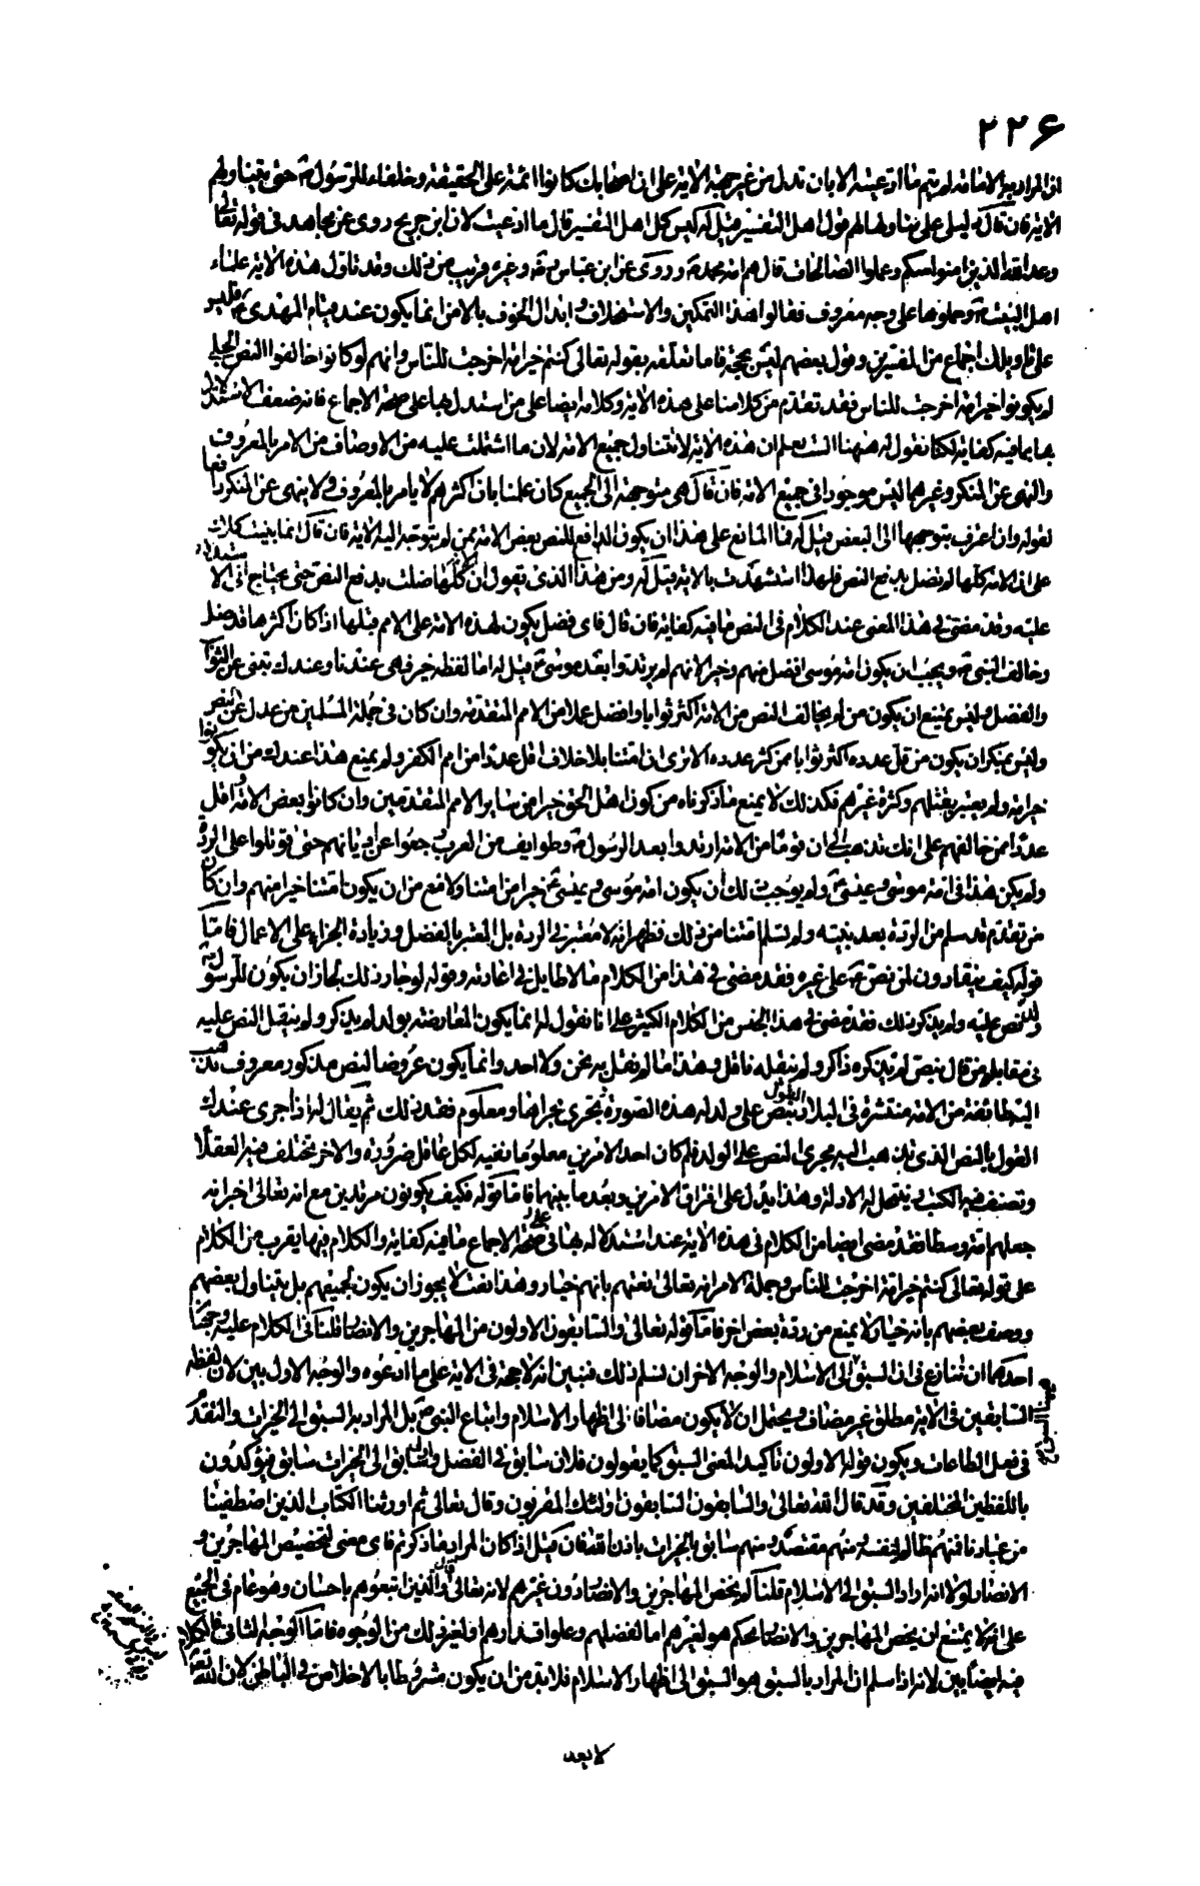 ٢٢۶
ان المراد به الامامة لم يتم ما ادعيته الا بان تدل من غير جهة الآية على ان اصحابك كانوا ائمة على الحقيقة وخلفاء للرسول ص حتى يتناولهم
الآية فان قال دليلي على تناولها لهم قول اهل التفسير قيل له ليس كل اهل التفسير قال ما ادعيت لان ابن جريج روى عن مجاهد في قوله تعالى
وعد الله الذين امنوا منكم وعملوا الصالحات قال هم امة محمد ص وروى عن ابن عباس ره وغيره قريب من ذلك وقد تاول هذه الآية علماء
اهل البيت ع وحملوها على وجه معروف فقالوا هذا التمكين والاستخلاف وابدال الخوف بالامن انما يكون عند قيام المهدى ع فليس
على تاويلك اجماع من المفسرين وقول بعضهم ليس بحجة فاما تعلقه بقوله تعالى كنتم خير امة اخرجت للناس وانهم لو كانوا خالفوا النص الجلى
لم يكونوا خير امة اخرجت للناس فقد تقدم من كلامنا على هذه الآية وكلامه ايضا على من استدل بها على صحة الاجماع فانه ضعف الاستدلال
بها بما فيه كفاية لكنا نقول له ههنا الست تعلم ان هذه الآية لا تتناول جميع الامة لان ما اشتملت عليه من الاوصاف من الامر بالمعروف
والنهى عن المنكر وغيرهما ليس موجودا في جميع الامة فان قال هى متوجهة الى الجميع كان علمنا بان اكثرهم لا يامر بالمعروف ولا ينهى عن المنكر دافعا
لقوله وان اعترف بتوجهها الى البعض قيل له فما المانع على هذا ان يكون الدافع للنص بعض الامة ممن لم يتوجه اليه الآية فان قال انما بينت كلامى
على ان الامة كلها لم تضل بدفع النص فلهذا استشهدت بالآية قيل له ومن هذا الذى يقول ان الامة كلها ضلت بدفع النص حتى يحتاج الى الاستدلال
عليه وقد مضى في هذا المعنى عند الكلام في النص ما فيه كفاية فان قال فاى فضل يكون لهذه الامة على الامم قبلها اذا كان اكثرها قد ضل
وخالف النبى ص ويجب ان يكون امة موسى افضل منهم وخيرا لانهم لم يرتدوا بعد موسى ع قيل له اما لفظة خير فهى عندنا وعندك تبنى عن الثواب
والفضل وليس يمتنع ان يكون من لم يخالف النص من الامة اكثر ثوابا وافضل عملا من الامم المتقدمة وان كان في جملة المسلمين من عدل عن النص
وليس بمنكر ان يكون من قل عدده اكثر ثوابا ممن كثر عدده الا ترى ان امتنا بلا خلاف اقل عددا من امم الكفر ولم يمنع هذا عندك من ان يكونوا
خير امة ولم يعتبر بقلتهم وكثرة غيرهم فكذلك لا يمنع ما ذكرناه من كون اهل الحق خيرا من ساير الامم المتقدمين وان كانوا بعض الامة او اقل
عددا ممن خالفهم على انك تذهب الى ان قوما من الامة ارتدوا بعد الرسول ص وطوايف من العرب رجعوا عن اديانهم حتى قوتلوا على الردة
ولم يكن هذا في امة موسى وعيسى ع ولم يوجب ذلك ان يكون امة موسى وعيسى ع خيرا من امتنا ولا منع من ان يكون امتنا خيرا منهم وان كان
من تقدم قد سلم من الردة بعد نبيه ولم تسلم امتنا من ذلك فظهر انه لا معتبر في الردة بل المعتبر بالفضل وزيادة الجزاء على الاعمال فاما
قوله كيف ينقادون لمن نص ع على غيره فقد مضى في هذا من الكلام ما لا طايل في اعادته وقوله لو جاز ذلك لجاز ان يكون للرسول ص
ولد نص عليه ولم يذكر ذلك فقد مضى في هذا الجنس من الكلام الكثير على انا نقول له انما يكون المعارضة بولد لم يذكر ولم ينقل النص عليه
في مقابلة من قال بنص لم يذكره ذاكر ولم ينقله ناقل وهذا ما لم نقل به نحن ولا احد وانما يكون عروضا لنص مذكور معروف تذهب
اليه طائفة من الامة منتشرة في البلاد بنص الرسول على ولد له هذه الصورة فتجرى مجراها ومعلوم فقد ذلك ثم يقال له اذا جرى عندك
القول بالنص الذى تذهب اليه مجرى النص على الولد فلم كان احد الامرين معلوما نفيه لكل عاقل ضرورة والاخر تختلف فيه العقلاء
وتصنف فيه الكتب وينتحل له الادلة وهذا يدل على افتراق الامرين وبعد ما بينهما فاما قوله فكيف يكونون مرتدين مع انه تعالى اخبر انه
جعلهم امة وسطا فقد مضى ايضا من الكلام في هذه الآية عند استدلاله بها في صحة الاجماع ما فيه كفاية والكلام فيها يقرب من الكلام
على قوله تعالى كنتم خير امة اخرجت للناس وجملة الامر انه تعالى نعتهم بانهم خيار وهذا نعت لا يجوز ان يكون لجميعهم بل يتناول بعضهم
ووصف بعضهم بانه خيار لا يمنع من ردة بعض اخر فاما قوله تعالى والسابقون الاولون من المهاجرين والانصار فلنا في الكلام عليه وجهان
احدهما ان نتنازع في ان السبق الى الاسلام والوجه الاخر ان نسلم ذلك فنبين انه لا حجة في الآية على ما ادعوه والوجه الاول بين لان لفظة
السابقين في الآية مطلق غير مضاف ويحتمل ان لا يكون مضافا الى اظهار الاسلام واتباع النبى ص بل المراد به السبق الى الخيرات والتقدم
في فعل الطاعات ويكون قوله الاولون تاكيد المعنى السبق كما يقولون فلان سابق في الفضل واول سابق الى الخيرات سابق فيؤكدون
باللفظين المختلفين وقد قال الله تعالى والسابقون السابقون اولئك المقربون وقال تعالى ثم اورثنا الكتاب الذين اصطفينا
من عبادنا فمنهم ظالم لنفسه ومنهم مقتصد ومنهم سابق بالخيرات باذن الله فان قيل اذا كان المراد ما ذكرتم فاى معنى لتخصيص المهاجرين و
الانصار لولا انه اراد السبق الى الاسلام قلنا له لم يخص المهاجرين والانصار دون غيرهم لانه تعالى قال والذين اتبعوهم باحسان وهو عام في الجميع
على انه لا يمتنع ان يخص المهاجرين والانصار بحكم هو لغيرهم اما لفضلهم وعلو اقدارهم او لغير ذلك من الوجوه فاما الوجه الثاني فالكلام
فيه ايضا بين لانه اذا سلم ان المراد بالسبق هو السبق الى اظهار الاسلام فلا بد من ان يكون مشروطا بالاخلاص في الباطن لان الله تعالى
لا يعد